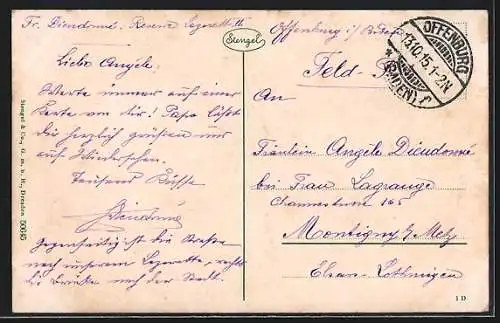 Fr. Dieudonné. Reserve Lazarett
Offenburg i/ Baden
Stengel
OFFENBURG
13.10.15. 1-2N
(BADEN)
Feld-
Liebe Angéle.
Warte immer auf einer
Karte von Dir! Papa läßt
Dich herzlich grüßen und
auf Wiedersehen.
Tausend Küsse
Dieudonné
Gegenseitig ist die Straße
nach unserem Lazarett, rechts
die Brücke nach der Stadt.
An
Fräulein Angéle Dieudonné
bei Frau Lagrange
165
Montigny b/ Metz
Elsass-Lothringen
Stengel & Co., G. m. b. H., Dresden 50645
1 D